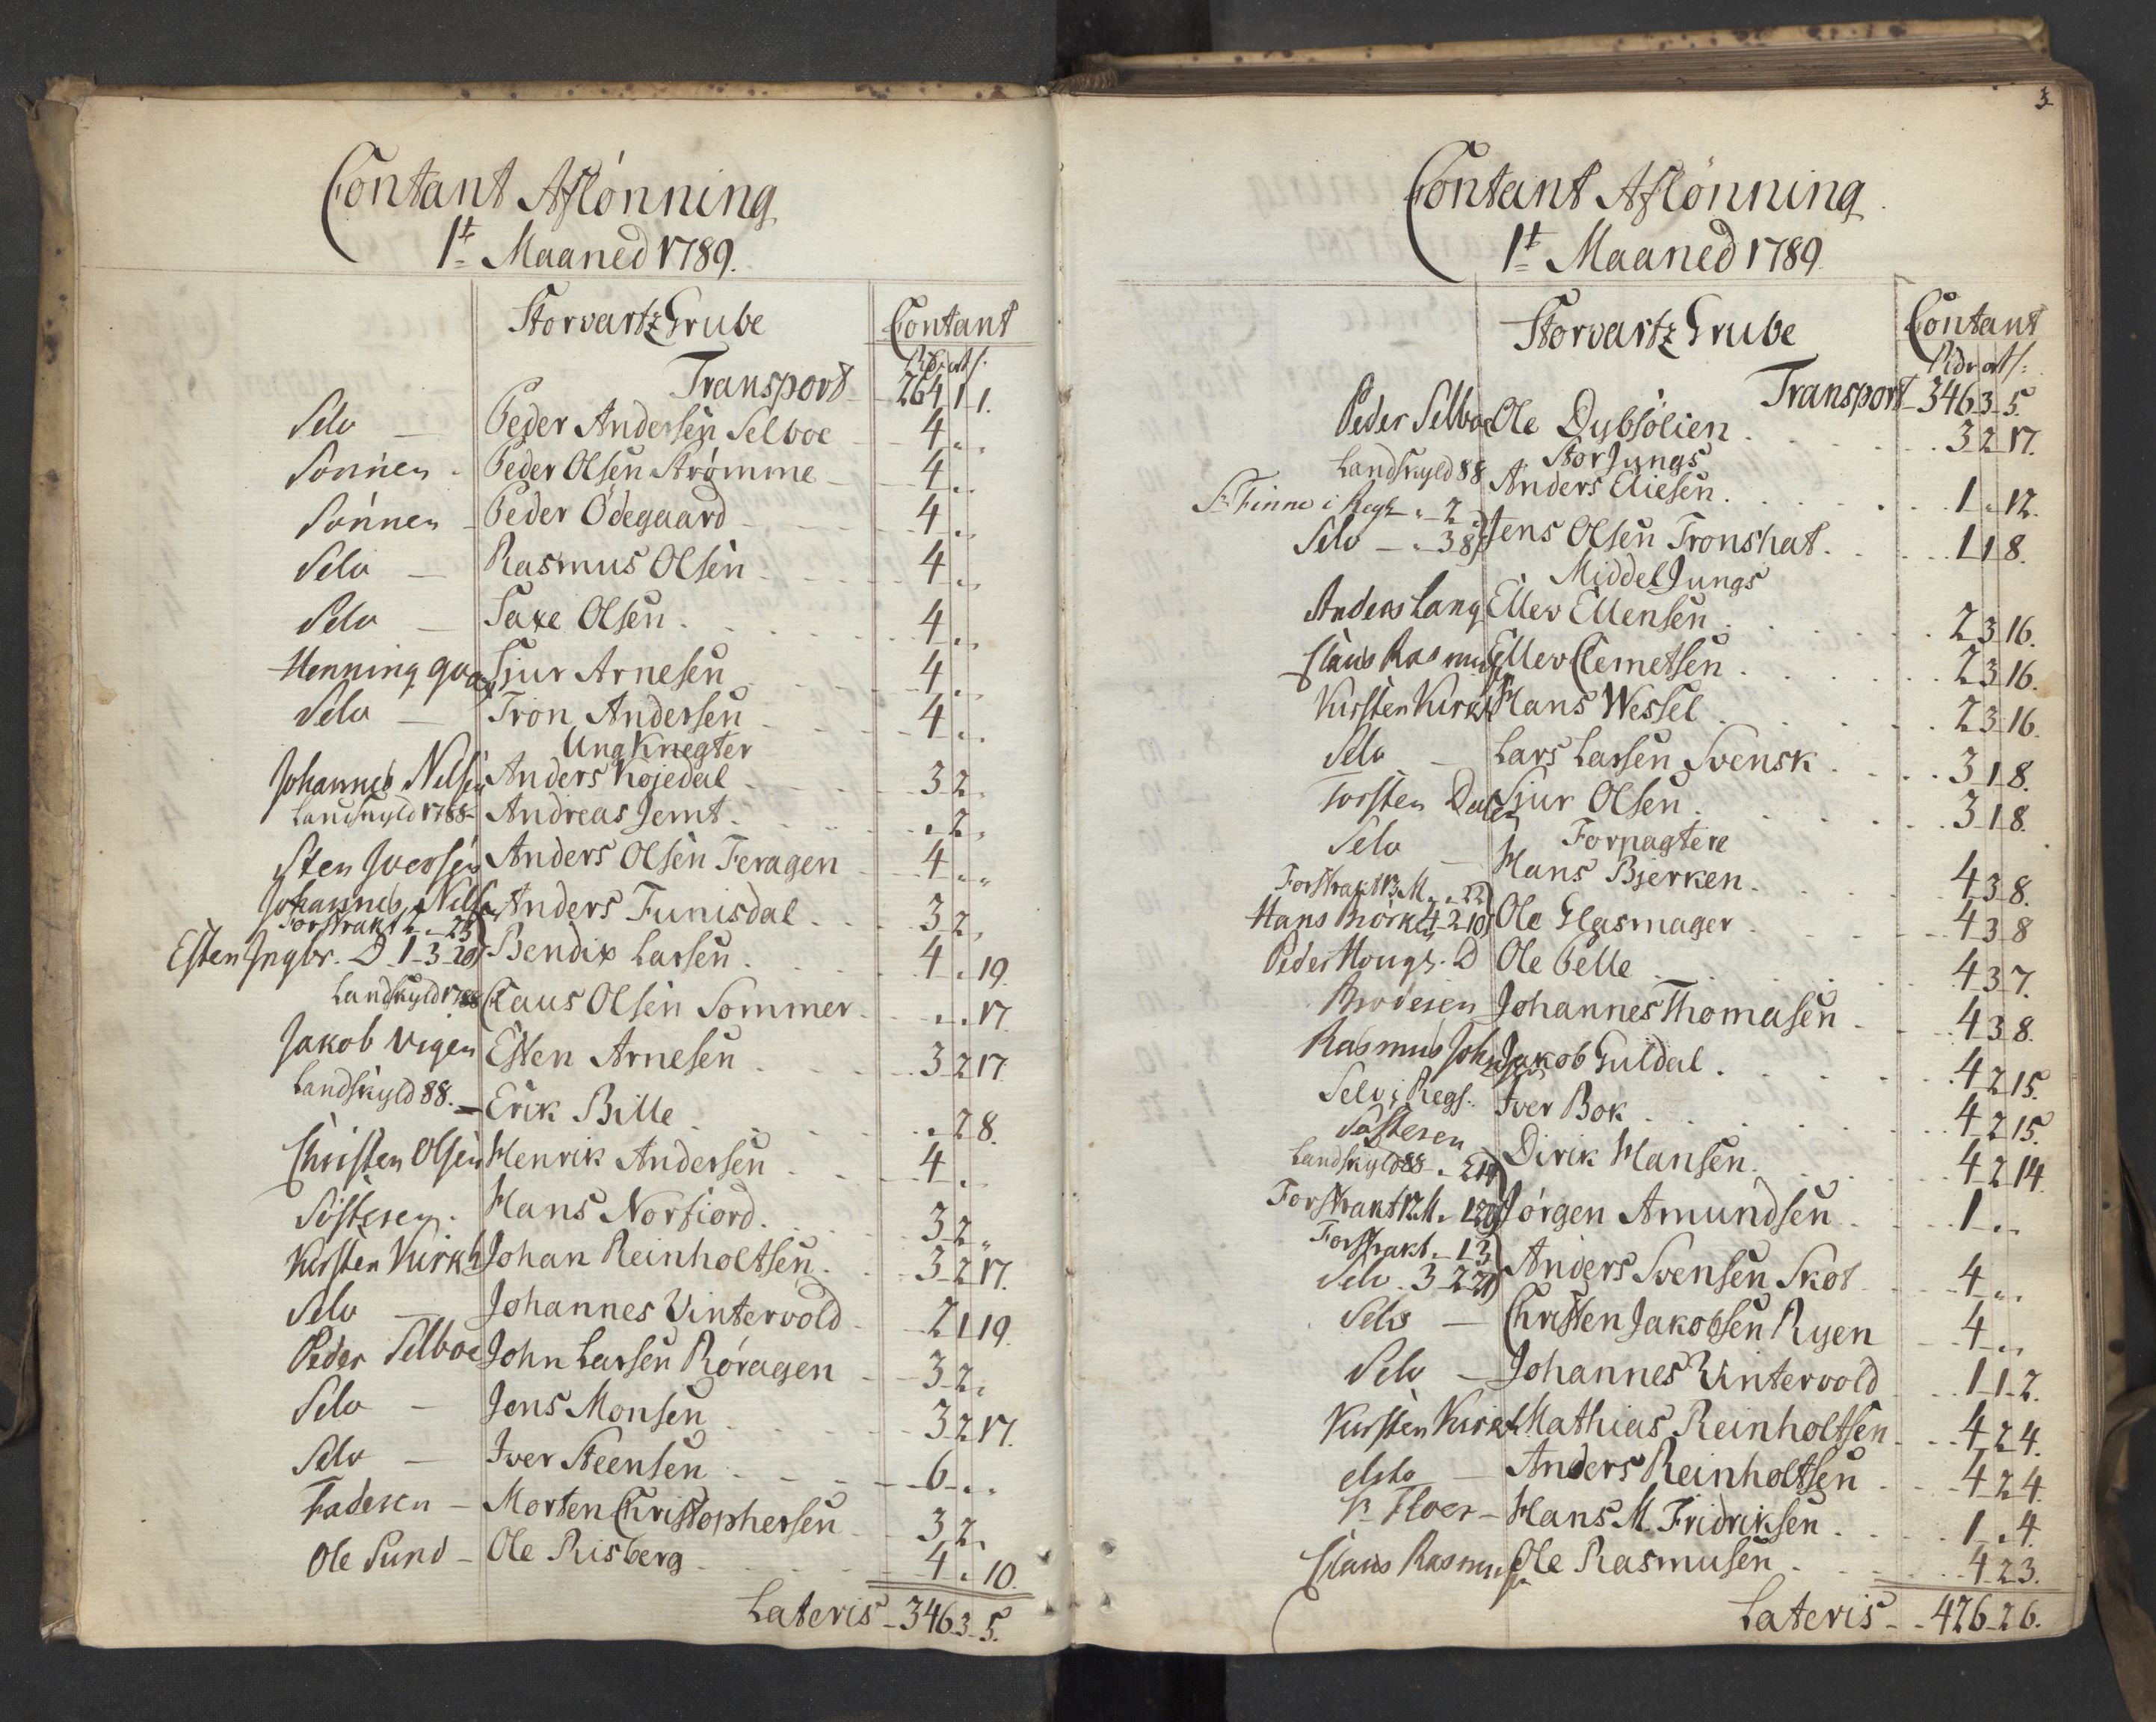 Contant Aflönning
1t Maaned 1789.
Storvartz Grube Contant
Rdr ort s:
Transport 264 1 1.
Selv — Peder Andersen Selboe 4 „ „
Sönnen Peder Olsen Strömme 4 „ „
Sönnen Peder Ödegaard 4 „ „
Selv — Rasmus Olsen 4 „ „
Selv — Saxe Olsen 4 „ „
Henning Sjur Arnesen 4 „ „
Selv — Tron Andersen 4 „ „
Ung Knegter
Johannes Nilsen Anders Kojedal 3 2 „
Landskyld 1788 Andreas Jemt „ 2 „
Sten Iversen Anders Olsen Feragen 4 „ „
Johannes Nilsen Anders Funisdal 3 2 „
Forstrakt 2 „ 23
Esten Ingbr. D 1-3-20 Bendix Larsen 4 „ 19
Landskyld 1788 Claus Olsen Sommer „ „ 17
Jakob Vigen Esten Arnesen 3 2 17
Landskyld 88. Erik Bille „ 2 8.
Christen Olsen Henrik Andersen 4 „ „
Söstesen Hans Norfiord 3 2 „
Kirsten Kirkh Johan Reinholtsen 3 2 17.
Selv — Johannes Vintervold 2 1 19.
Peder Selboe John Larsen Röragen 3 2 „
Selv — Jens Monsen 3 2 17.
Selv — Iver Steensen 6 „ „
Faderen — Morten Christophersen 3 2 „
Ole Sund — Ole Risberg 4 „ 10.
Lateris 346 3 5.
3
Contant Aflönning
1t Maaned 1789.
Storvartz Grube Contant
Rdr ort s:
Transport 346 3 5.
Peder Selboe Ole Dybsölien 3 2 17.
Stor Jungs
Landskyld 88 Anders Eliesen 1 „ 12.
S: Finne i Regs „ 2 „
Selv — „ 3 8 Jens Olsen Tronshat 1 1 8.
Middel Jungs
Anders Lang Ellev Ellensen 2 3 16.
Claus Rasmus Ellev Clemetsen 2 3 16.
Kirsten Kirkh Hans Wessel 2 3 16.
Selv — Lars Larsen Svensk 3 1 8.
Torsten Dalen Sjur Olsen 3 1 8.
Forpagtere
Selv — Hans Bjerken 4 3 8.
Forstrakt 13 M. „ „ 22
Hans Björken 4 2 10 Ole Glasmager 4 3 8
Peder Hougs. D Ole Pelle 4 3 7.
Broderen Johannes Thomasen 4 3 8.
Rasmus Johns Jakob Guldal 4 2 15.
Selv i Regs. Iver Bok 4 2 15.
Söstesen Dirik Hansen 4 2 14.
Landskyld 88 „ 2 14
Forstrakt 12 M. „ 1 20 Jörgen Amundsen 1 „ „
Forstrakt „ 1 3
Selv. 3 2 21 Anders Svensen Skot 4 „ „
Selv — Christen Jakobsen Ryen 4 „ „
Selv — Johannes Vintervold 1 1 2.
Kirsten Kirkh Mathias Reinholtsen 4 2 4.
dito — Anders Reinholtsen 4 2 4.
Hans M. Fridriksen 1 „ 4.
Claus Rasmusn Ole Rasmusen 4 2 3.
Lateris 426 2 6.